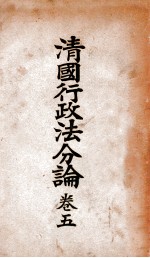 清國行政法分論 卷五